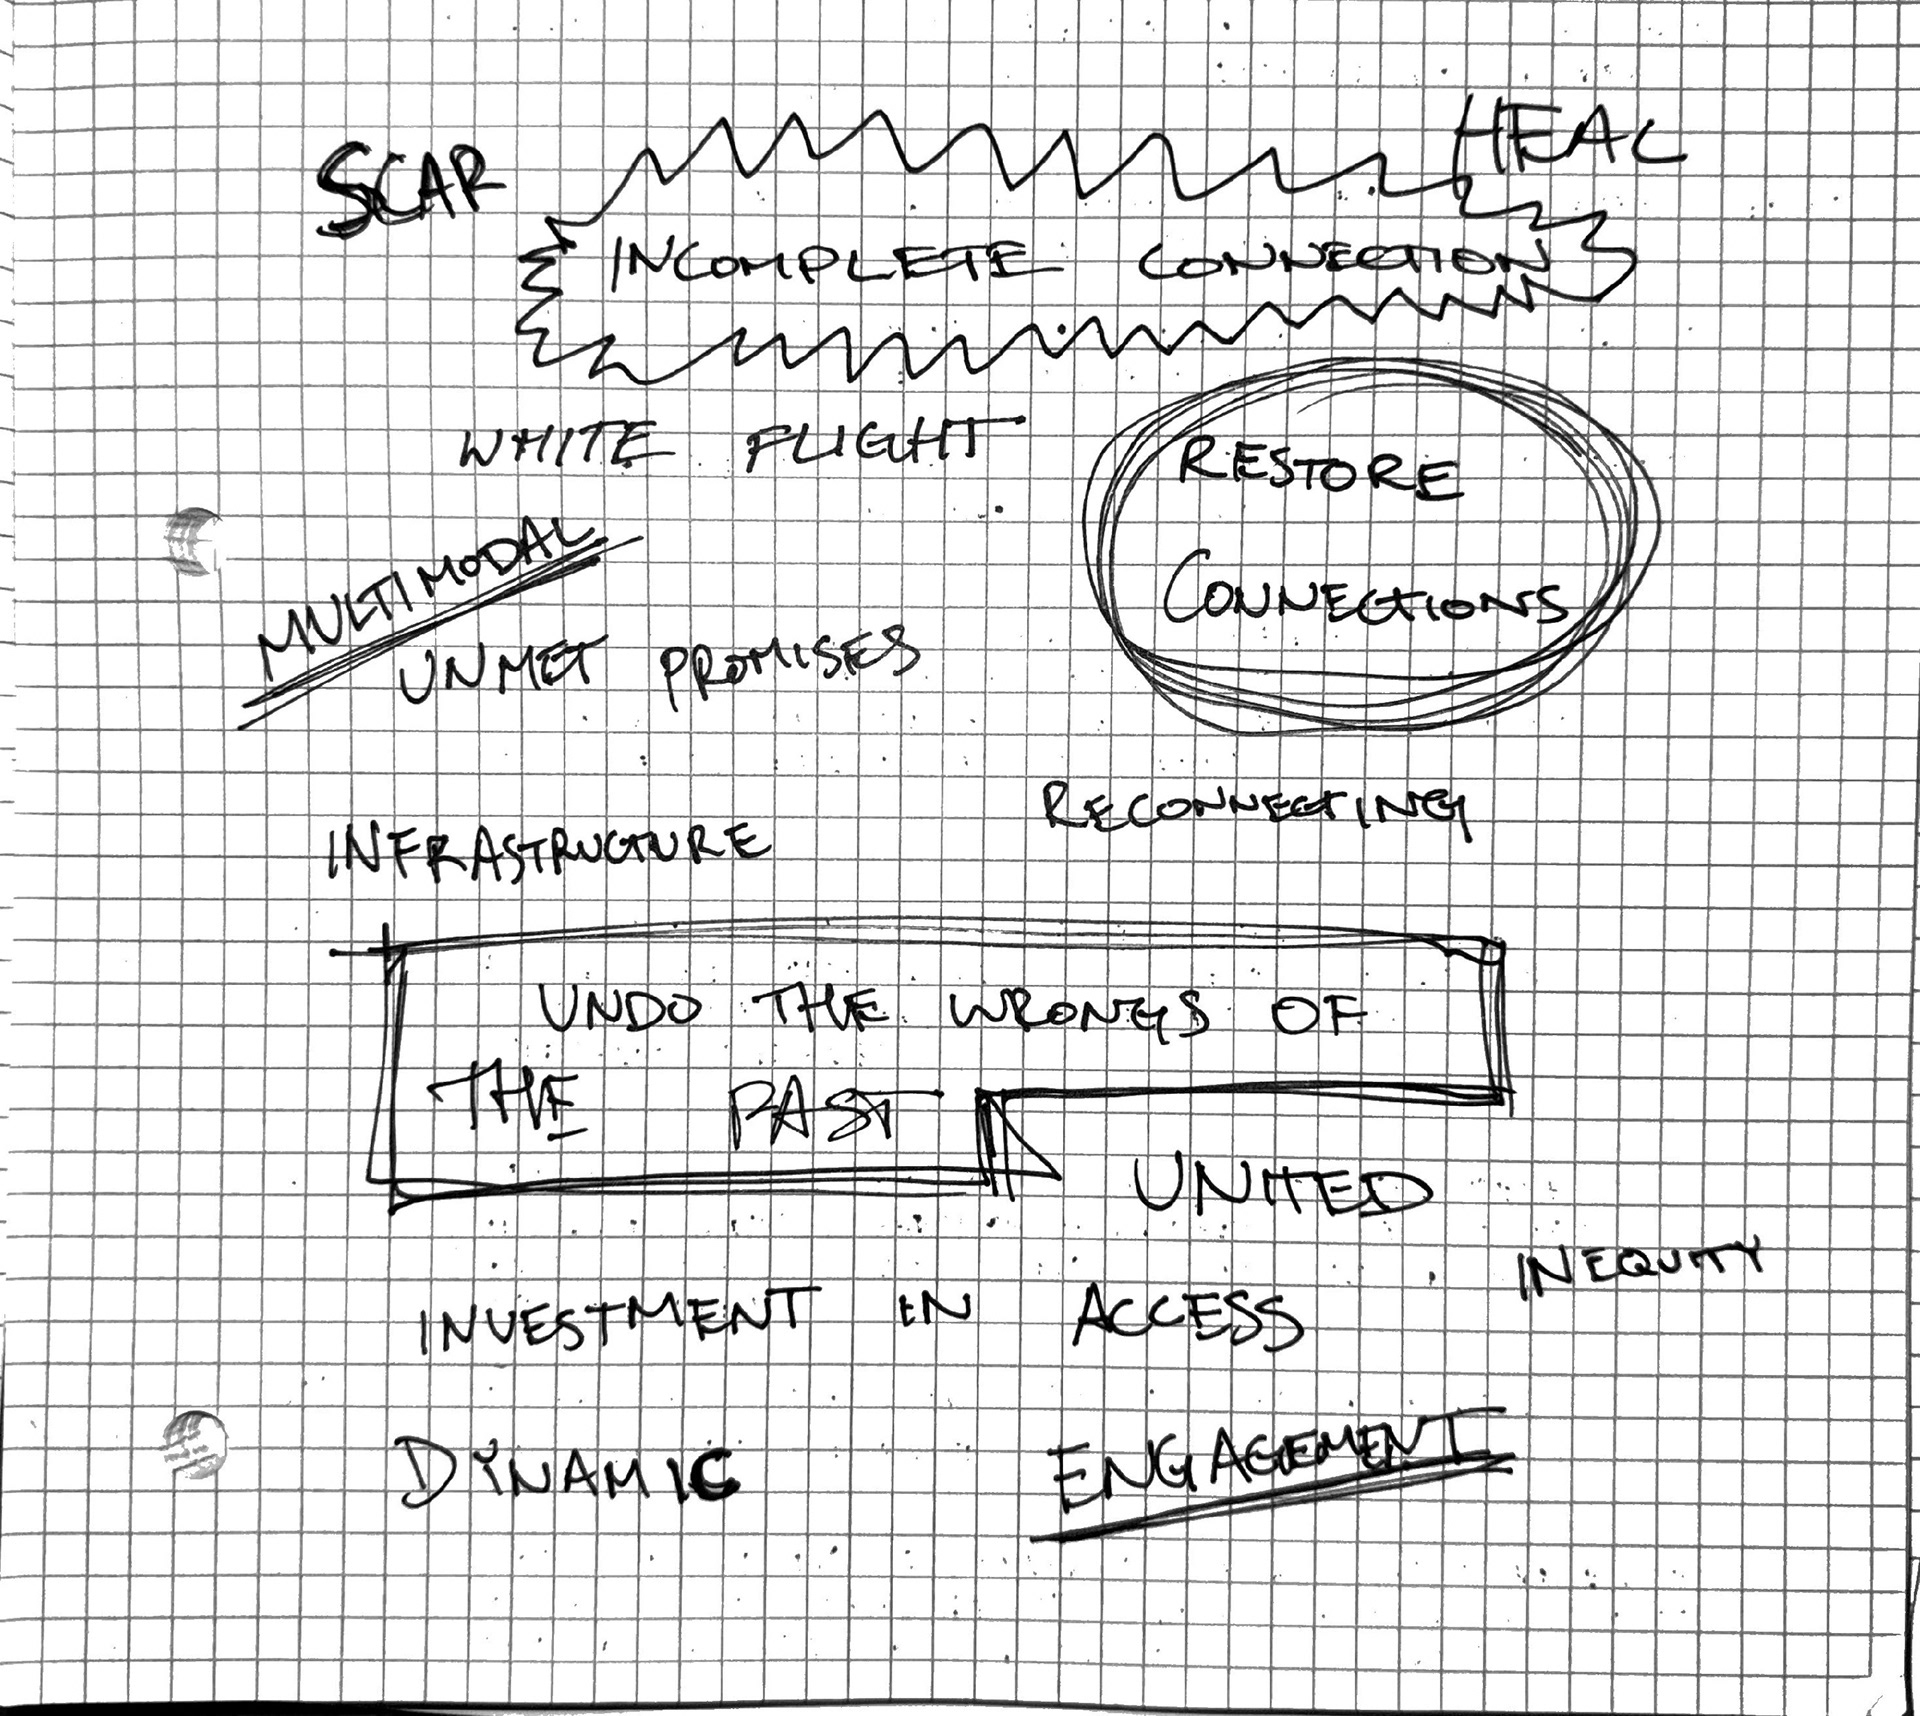 SCAR
HEAL
INCOMPLETE CONNECTION
WHITE FLIGHT
RESTORE
CONNECTIONS
MULTIMODAL
UNMET PROMISES
RECONNECTING
INFRASTRUCTURE
UNDO THE WRONGS OF
THE PAST
UNITED
INEQUITY
INVESTMENT IN ACCESS
DYNAMIC
ENGAGEMENT